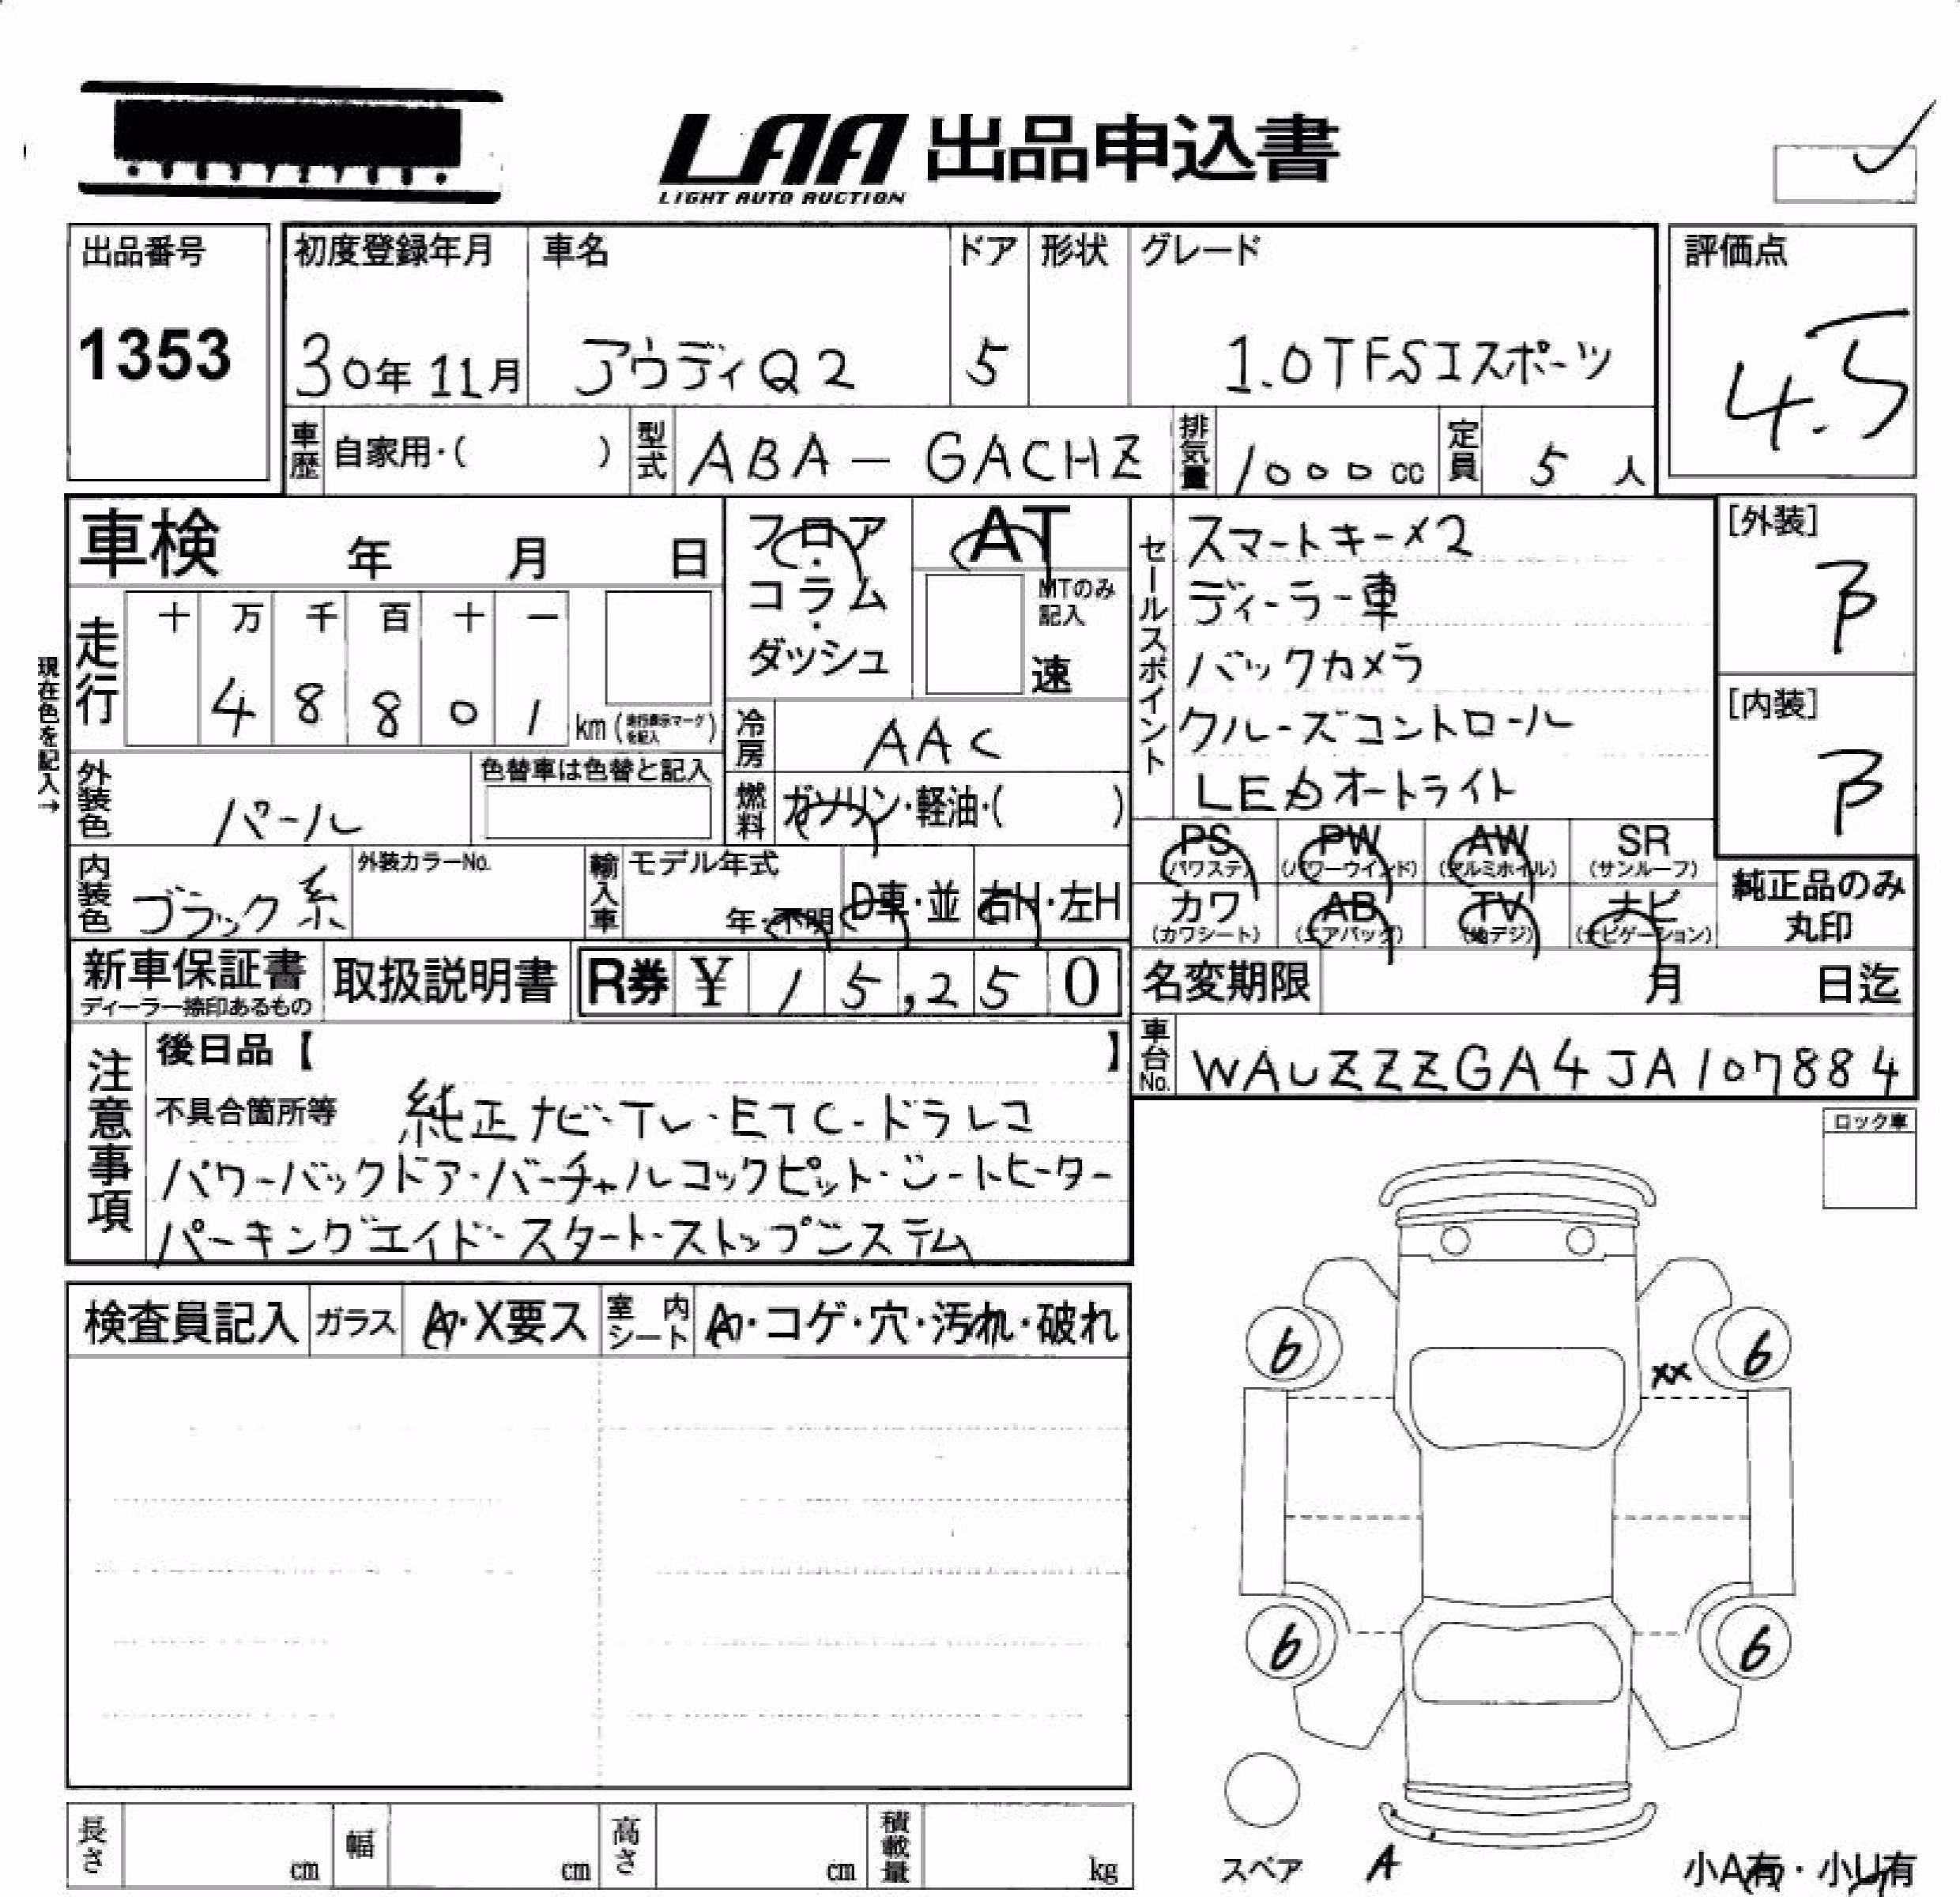 LAA 出品申込書
LIGHT AUTO AUCTION
出品番号
1353
初度登録年月
30年11月
車名
アウディQ2
ドア
5
形状
グレード
1.0TFSIスポーツ
評価点
4.5
車歴 自家用・( )
型式 ABA-GACHZ
排気量 1000cc
定員 5人
車検 年 月 日
フロア・コラム・ダッシュ
AT
MTのみ記入
速
セールスポイント
スマートキー×2
ディーラー車
バックカメラ
クルーズコントロール
LEDオートライト
[外装]
B
[内装]
B
現在色を記入→
走行
十 万 千 百 十 一
4 8 8 0 1 km(走行表示マークを記入)
冷房 AAC
外装色 パール
色替車は色替と記入
燃料 ガソリン・軽油・( )
PS (パワステ)
PW (パワーウインド)
AW (アルミホイル)
SR (サンルーフ)
カワ (カワシート)
AB (エアバッグ)
TV (地デジ)
ナビ (ナビゲーション)
純正品のみ丸印
内装色 ブラック系
外装カラーNo.
輸入車
モデル年式
年・不明
D車・並
右H・左H
新車保証書
ディーラー捺印あるもの
取扱説明書
R券 ¥ 15,250
名変期限 月 日迄
車台No. WAUZZZGA4JA107884
注意事項
後日品【 】
不具合箇所等 純正ナビ・TV・ETC・ドラレコ
パワーバックドア・バーチャルコックピット・シートヒーター
パーキングエイド・スタート・ストップシステム
ロック車
検査員記入
ガラス A・X要ス
室内シート A・コゲ・穴・汚れ・破れ
6 6
XX
6 6
スペア
A
小A有・小U有
長さ cm
幅 cm
高さ cm
積載量 kg